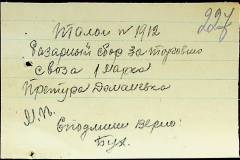 227
Талон № 1912
Базарный сбор за торговлю
с воза 1 марка
Претура Доманевка
М.П.
С подлинным верно
Бух.